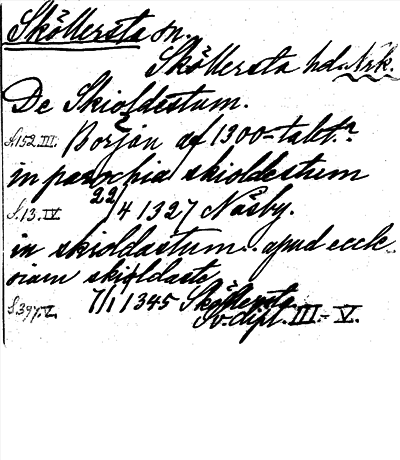 Sköllersta sn.
Sköllersta hd. Nrk.
De Skioldestum.
S. 152. III. Början af 1300-talet?
in parochia skioldestum
S. 13. IV. 22/4 1327 Näsby.
in skioldastum. apud eccle
siam skioldaste
S. 397. V. 7/1 1345 Sköllersta.
Sv. dipl. III.-V.